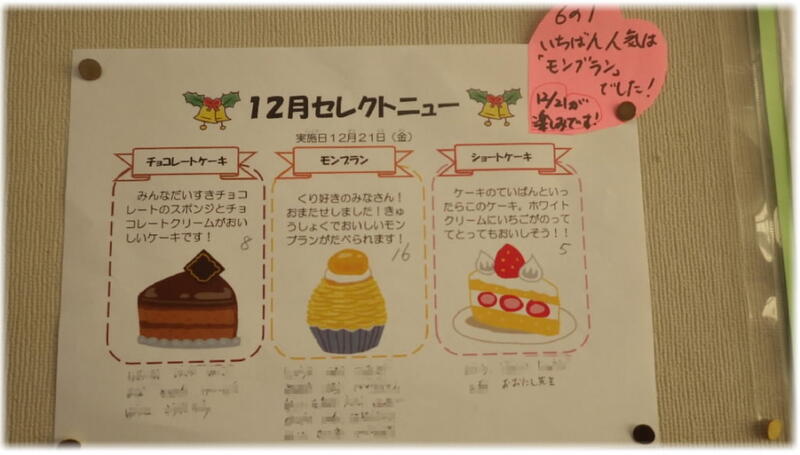 6の1
いちばん人気は
「モンブラン」
でした!
12/21が
楽しみです!
12月セレクトニュー
実施日12月21日(金)
チョコレートケーキ
みんなだいすきチョコ
レートのスポンジとチョ
コレートクリームがおい
しいケーキです!
8
モンブラン
くり好きのみなさん!
おまたせしました!きゅ
うしょくでおいしいモン
ブランがたべられます!
16
ショートケーキ
ケーキのていばんといっ
たらこのケーキ。ホワイト
クリームにいちごがのって
てとってもおいしそう!!
5
おおにし先生